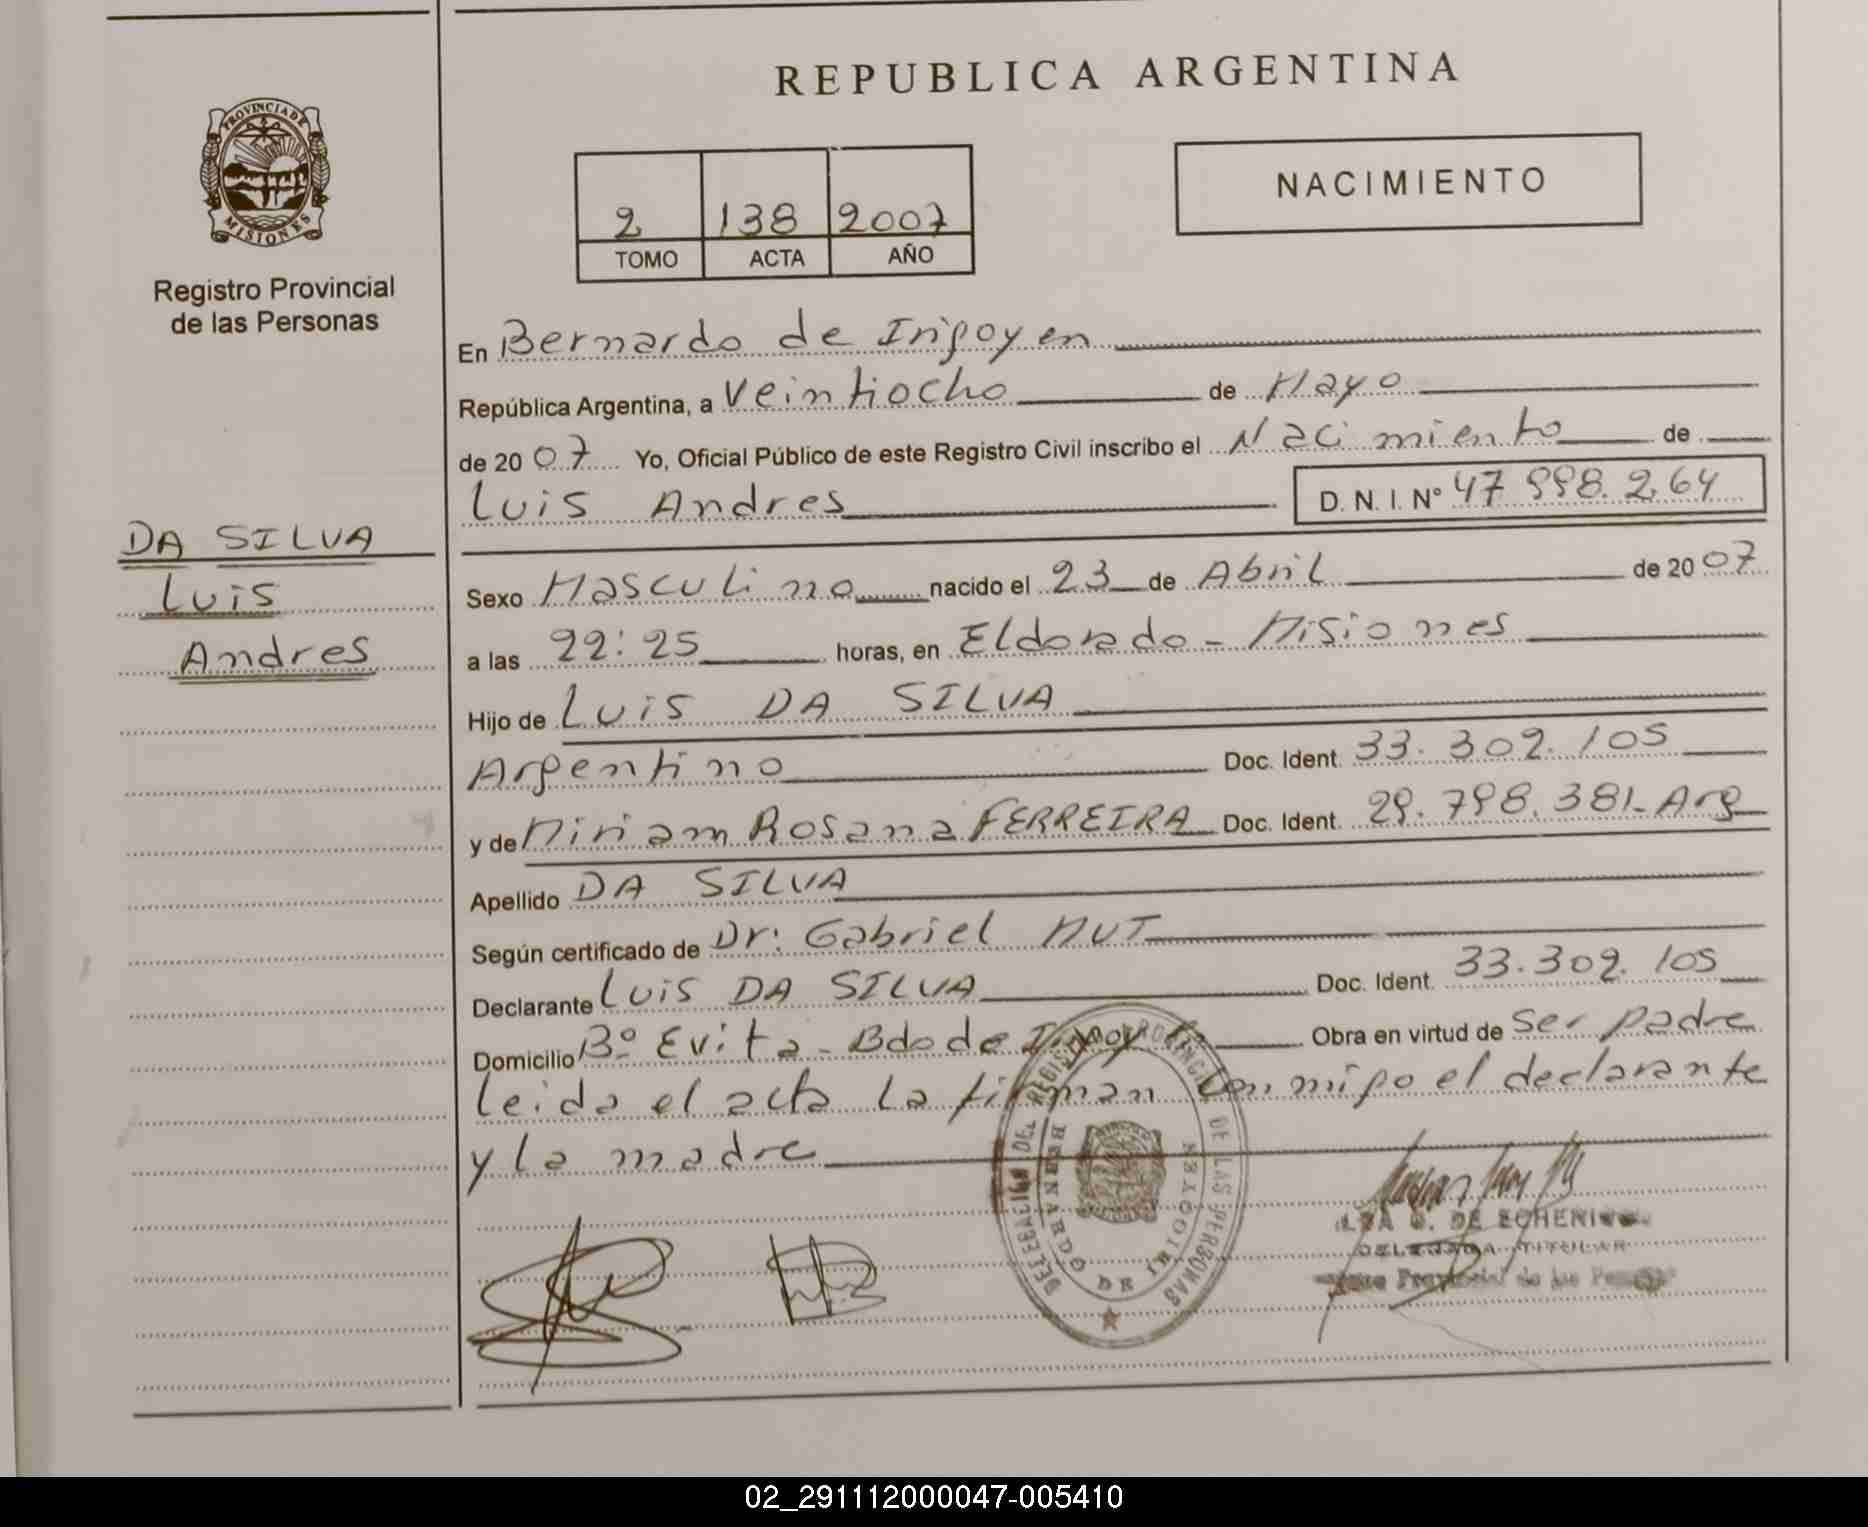 REPUBLICA ARGENTINA
PROVINCIA DE
MISIONES
Registro Provincial
de las Personas
NACIMIENTO
2 138 2007
TOMO ACTA AÑO
En Bernardo de Irigoyen
República Argentina, a Veintiocho de Mayo
de 2007 Yo, Oficial Público de este Registro Civil inscribo el Nacimiento de
Luis Andres D. N. I. N° 47 998.264
DA SILVA
Luis
Andres
Sexo Masculino nacido el 23 de Abril de 2007
a las 22:25 horas, en Eldorado - Misiones
Hijo de Luis DA SILVA
Argentino Doc. Ident. 33.302.105
y de Miriam Rosana FERREIRA Doc. Ident. 29.798.381- Arg
Apellido DA SILVA
Según certificado de Dr: Gabriel MUT
Declarante Luis DA SILVA Doc. Ident. 33.302.105
Domicilio B° Evita - Bdo de Irigoyen Obra en virtud de Ser padre
Leida el acta La firman conmigo el declarante
y la madre
DELEGACION DEL REGISTRO PROVINCIAL DE LAS PERSONAS
BERNARDO DE IRIGOYEN
DE ECHENI
DELEGADA TITULAR
Provincial de las
02_291112000047-005410